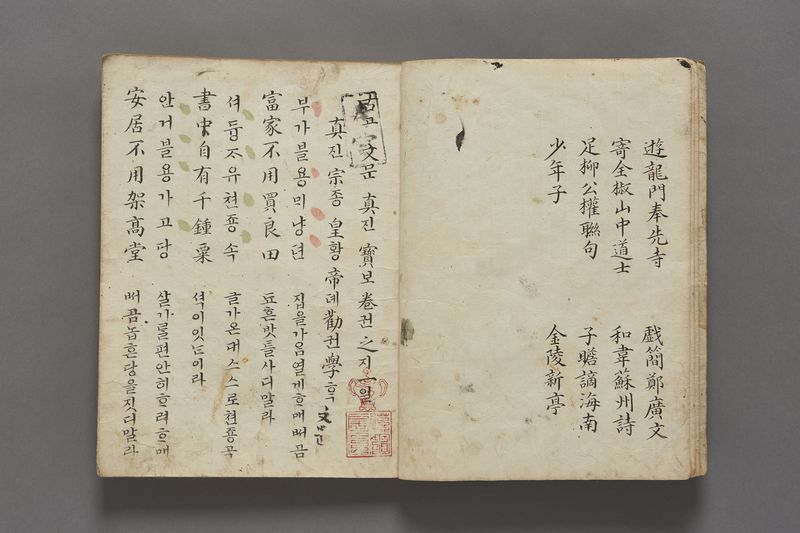 遊龍門奉先寺 戲簡鄭廣文
寄全椒山中道士 和韋蘇州詩
足柳公權聯句 子瞻謫海南
少年子 金陵新亭
고文문眞진寶보卷권之지일
眞진宗종皇황帝뎨勸권學ᄒᆞᆨ文문
부가블용ᄆᆡ냥뎐 집을가음열게ᄒᆞ매ᄡᅥ곰
富家不用買良田 됴흔밧틀사디말라
셔듕ᄌᆞ유쳔죵속 글가온대스스로쳔죵곡
書中自有千鍾粟 셕이잇ᄂᆞ니라
안거블용가고당 살기ᄅᆞᆯ편안히ᄒᆞ려ᄒᆞ매
安居不用架高堂 ᄡᅥ곰놉흔당을짓디말라